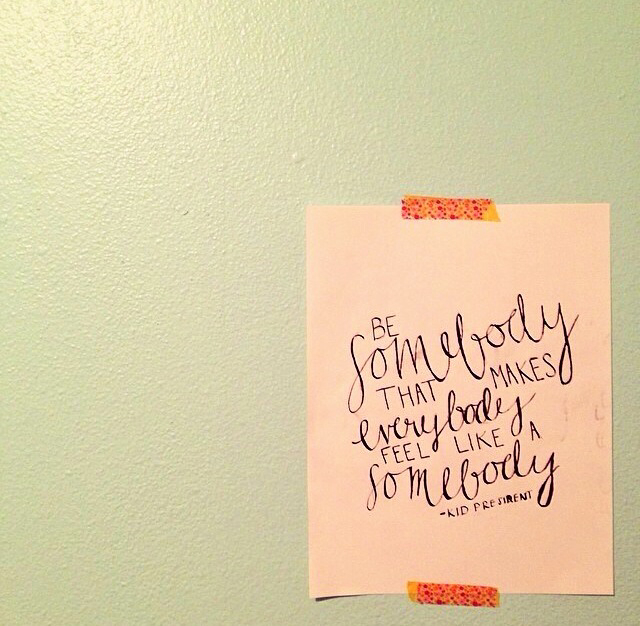 BE
somebody
THAT MAKES
everybody
FEEL LIKE A
somebody
-KID PRESIRENT